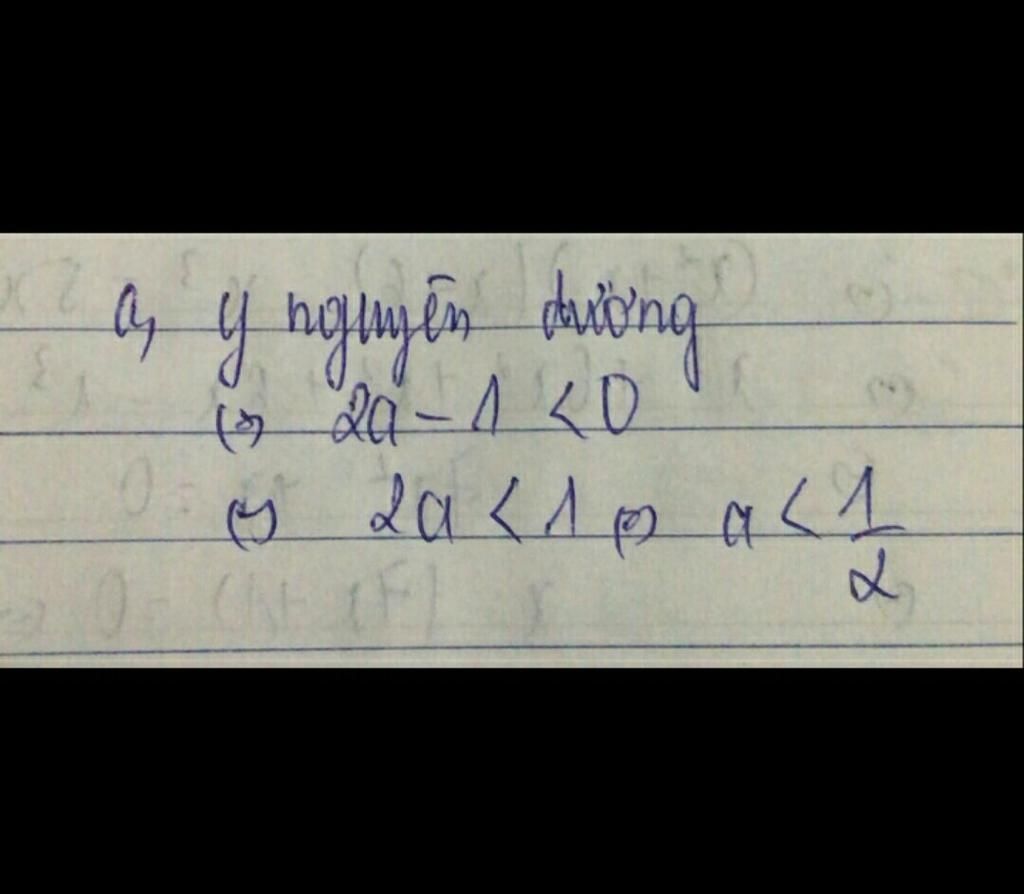 a, y nguyên dương
(=) 2a - 1 < 0
(=) 2a < 1 (=) a < 1/2